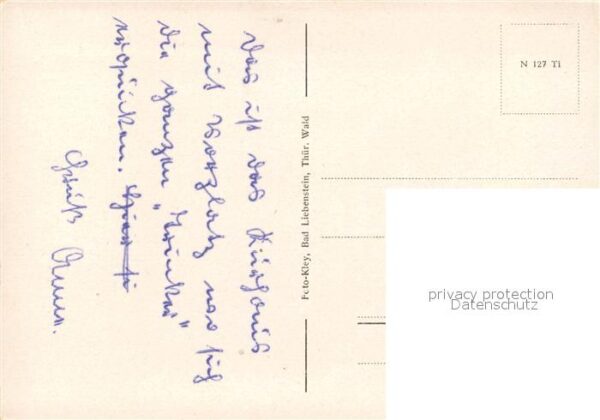 Das ist das Kurhaus
mit Vorplatz wo sich
die ganzen „Trinker"
erquicken.
Gruß
Foto-Kley, Bad Liebenstein, Thür. Wald
N 127 Ti
privacy protection
Datenschutz